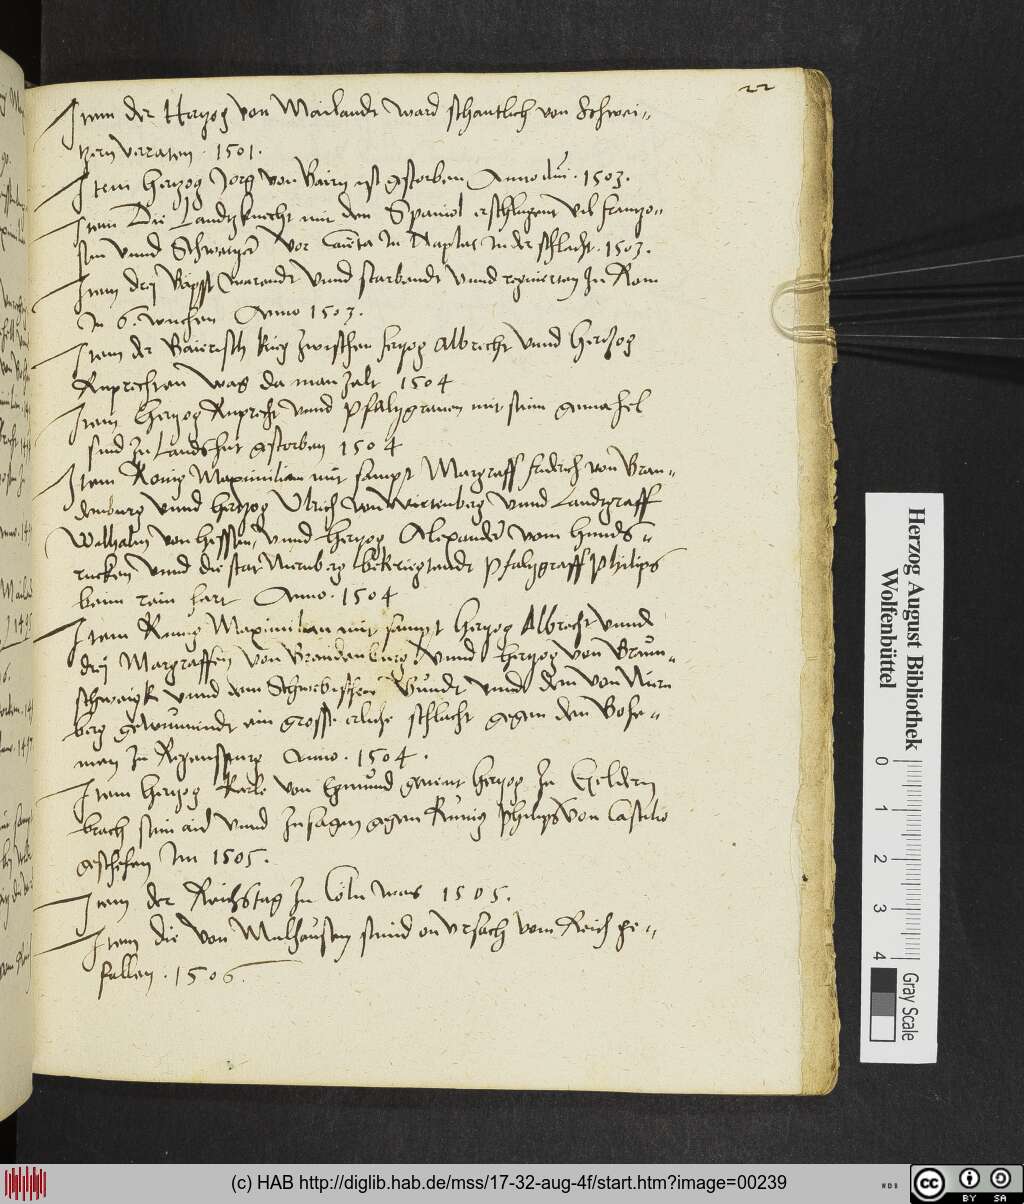 22
Item der Hertzog von Mailandt ward schantlich von Schwei-
tzern verraten . 1501 .
Item hertzog Jorg von Bairn ist gestorben Anno dni . 1503 .
Item Die Landtzknecht mit dem Spaniol erschlugent vil frantzo-
sen vnnd Schweitzer vor Caieta In Naplas In der schlacht . 1503 .
Item drej Bäpst warendt vnnd starbendt vnnd regierten In Rom
In 6 . wuchen Anno 1503 .
Item der Baierisch krieg zwischen hertzog Albrecht vnnd Hertzog
Ruprechten was da man zalt 1504
Item hertzog Ruprecht vnnd pfaltzgrauen mit seim gemahel
sind zu Landshut gestorben 1504
Item König Maximilian mit sampt Margraff fridrich von Bran-
denburg vnnd hertzog Vlrich von Wirtenberg vnnd Landtgraff
Wilhalm von hessen, vnnd hertzog Alexander vom hunds-
rucken vnnd die stat Nurnberg bekriegtendt pfaltzgraff philips
beim rein hart Anno . 1504
Item Kunig Maximilian mit sampt hertzog Albrecht vnnd
drej Margraffen von Brandenburg vnnd hertzog von Braun-
schweigk vnnd dem Schwebischen Bundt vnnd dem von Nurn
berg gewunnendt ein grosse erliche schlacht gegen den Bohe-
men zu Regenspurg Anno . 1504 .
Item hertzog Karle von Egmund genent hertzog zu Geldern
brach sein aid vnnd zusagen gegen Kunig philips von Castilio
geschehen Im 1505 .
Item der Reichstag zu Cöln was 1505 .
Item die von Mulhausen seind on vrsach vom Reich ge-
fallen . 1506 .
Herzog August Bibliothek
Wolfenbüttel
0 1 2 3 4
Gray Scale
(c) HAB http://diglib.hab.de/mss/17-32-aug-4f/start.htm?image=00239
WDB
CC BY SA